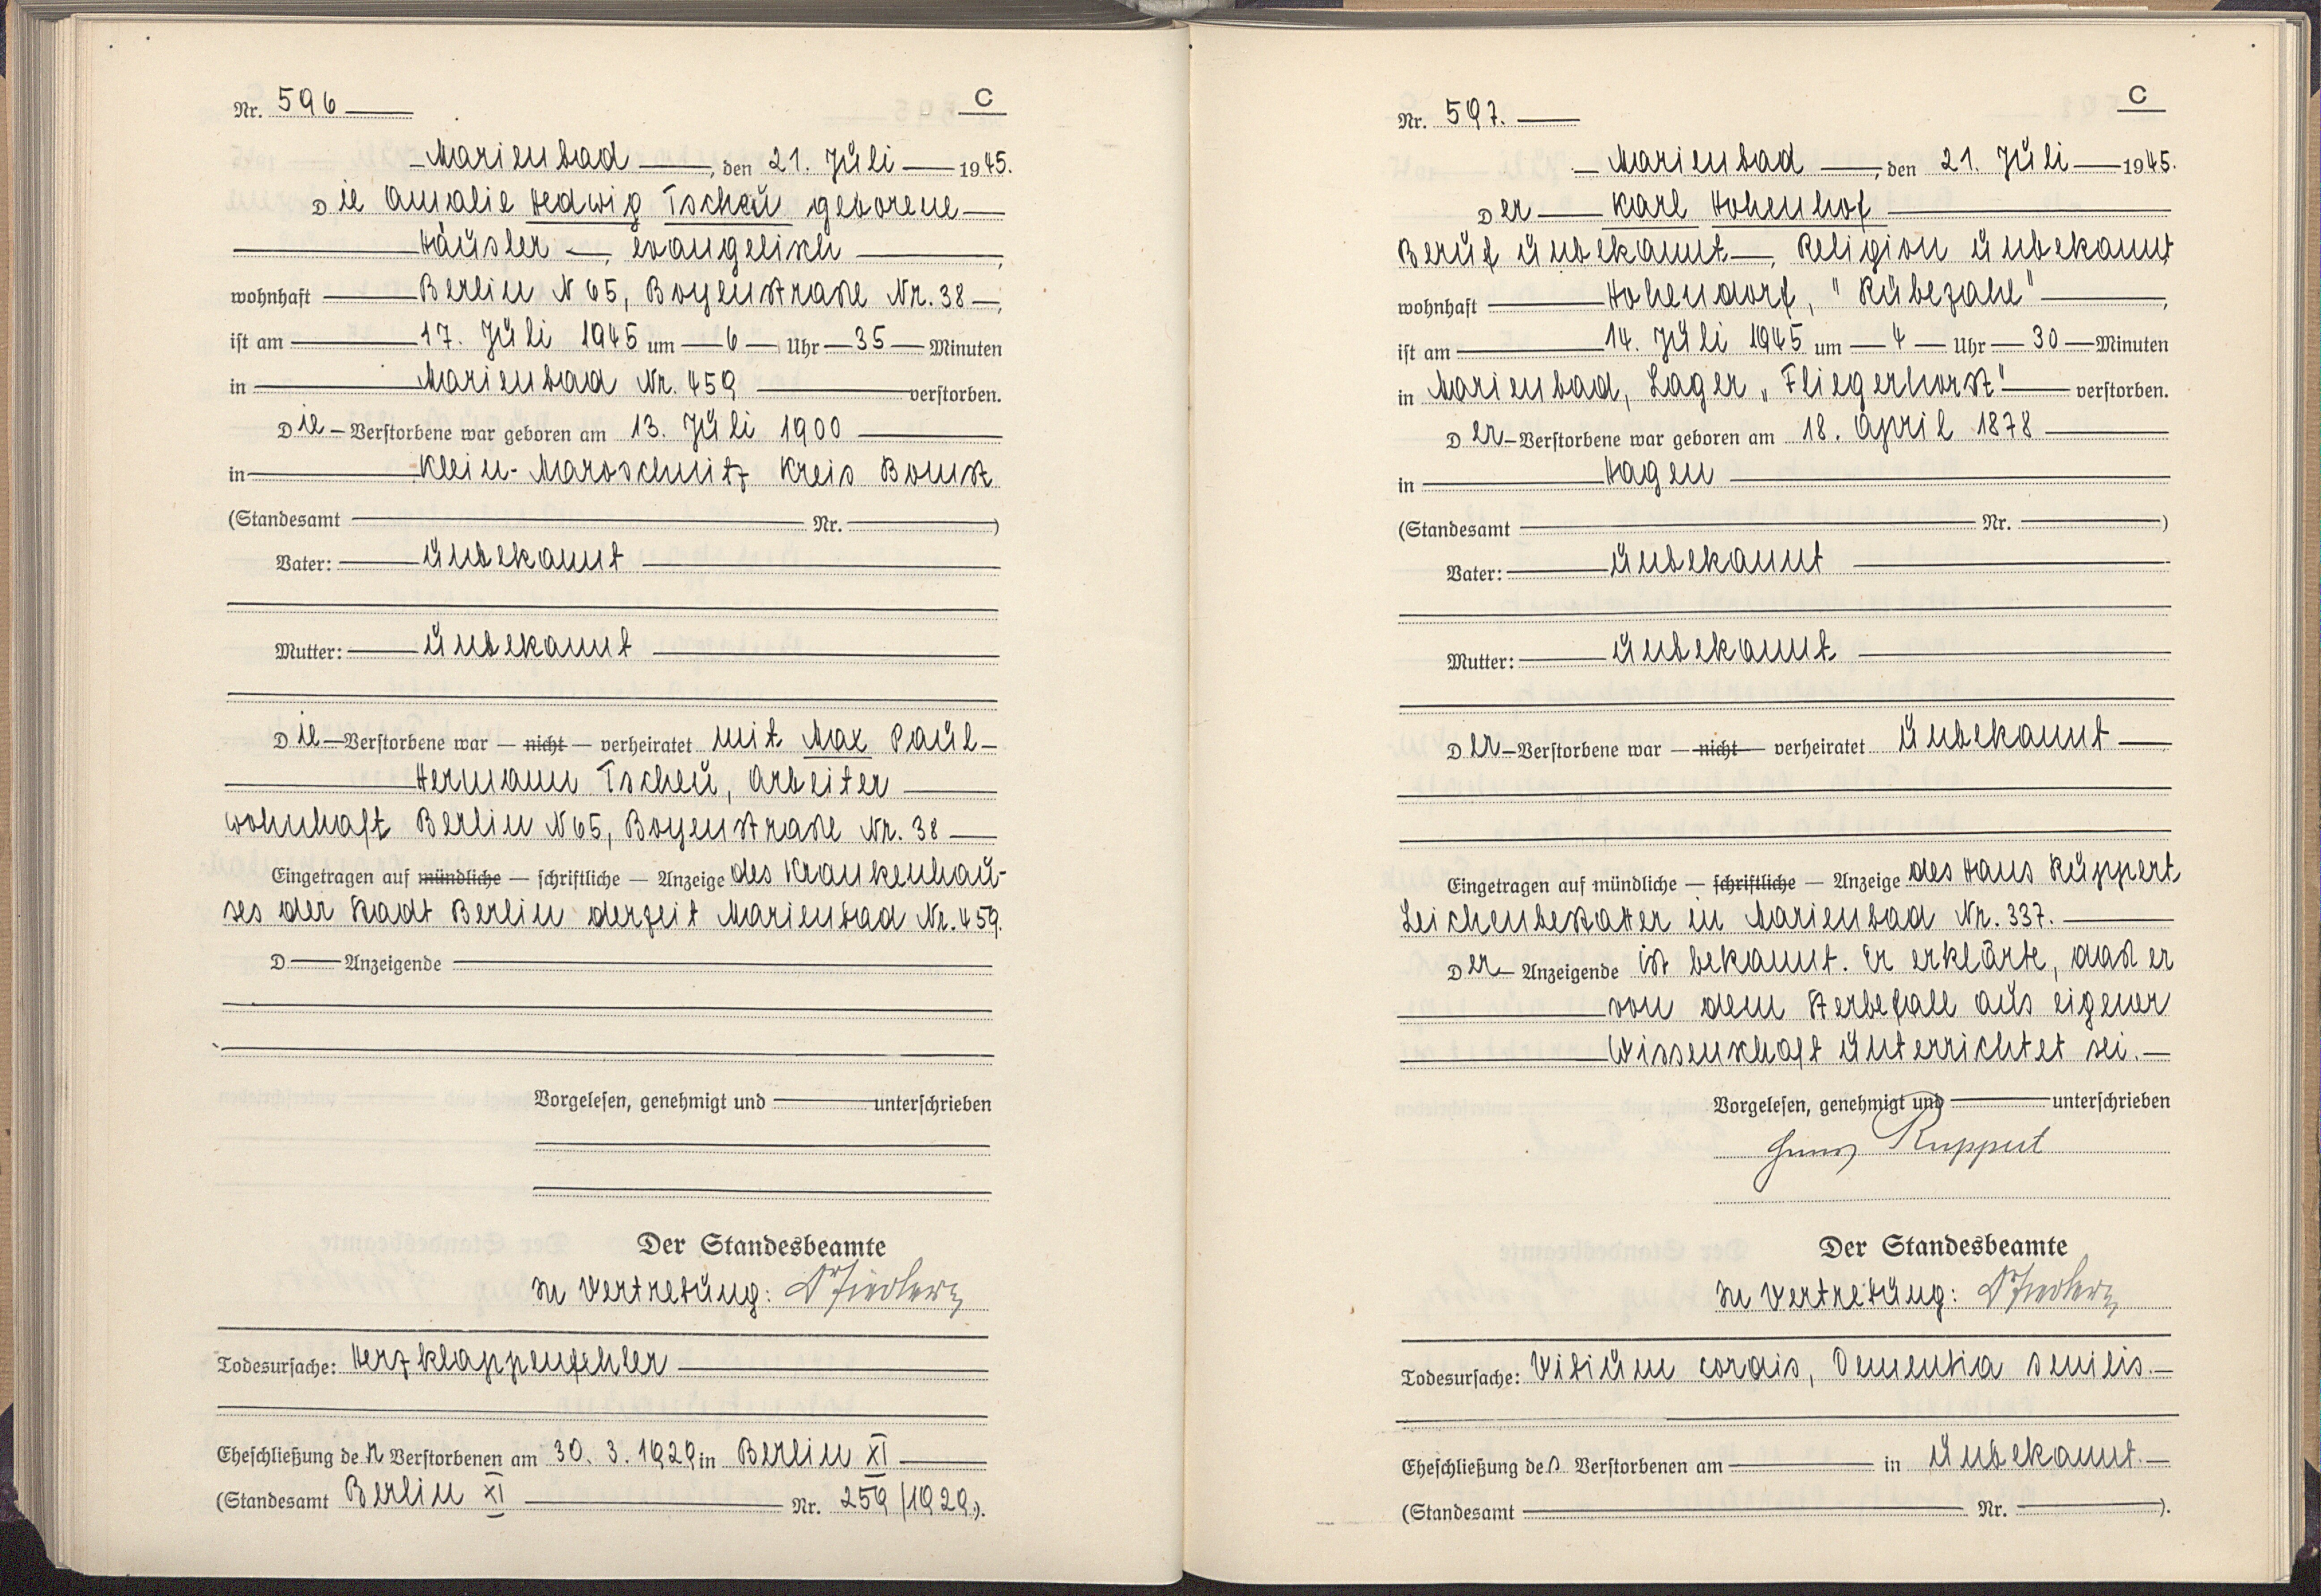 Nr. 596
C
Marienbad, den 21. Juli 1945.
Die Amalie Hedwig Tscheu geborene
Häusler, evangelisch,
wohnhaft Berlin N 65, Boyenstraße Nr. 38,
ist am 17. Juli 1945 um 6 Uhr 35 Minuten
in Marienbad Nr. 459 verstorben.
Die Verstorbene war geboren am 13. Juli 1900
in Klein-Maroschnitz Kreis Bomst
(Standesamt Nr. )
Vater: unbekannt
Mutter: unbekannt
Die Verstorbene war — nicht — verheiratet mit Max Paul
Hermann Tscheu, Arbeiter
wohnhaft Berlin N 65, Boyenstraße Nr. 38
Eingetragen auf mündliche — schriftliche — Anzeige des Krankenhau-
ses der Stadt Berlin derzeit Marienbad Nr. 459.
D Anzeigende
Vorgelesen, genehmigt und unterschrieben
Der Standesbeamte
In Vertretung: Dr Fiedler
Todesursache: Herzklappenfehler
Eheschließung der Verstorbenen am 30. 3. 1929 in Berlin XI
(Standesamt Berlin XI Nr. 259/1929.).
Nr. 597.
C
Marienbad, den 21. Juli 1945.
Der Karl Hohenhof
Beruf unbekannt, Religion unbekannt
wohnhaft Hohendorf, "Rübezahl",
ist am 14. Juli 1945 um 4 Uhr 30 Minuten
in Marienbad, Lager „Fliegerhorst" verstorben.
Der Verstorbene war geboren am 18. April 1878
in Hagen
(Standesamt Nr. )
Vater: unbekannt
Mutter: unbekannt
Der Verstorbene war — nicht — verheiratet unbekannt
Eingetragen auf mündliche — schriftliche — Anzeige des Hans Ruppert,
Leichenbestatter in Marienbad Nr. 337.
Der Anzeigende ist bekannt. Er erklärte, daß er
von dem Sterbefall aus eigener
Wissenschaft unterrichtet sei.
Vorgelesen, genehmigt und unterschrieben
Hans Ruppert
Der Standesbeamte
In Vertretung: Dr Fiedler
Todesursache: Vitium cordis, Dementia senilis.
Eheschließung des Verstorbenen am in unbekannt.
(Standesamt Nr. ).